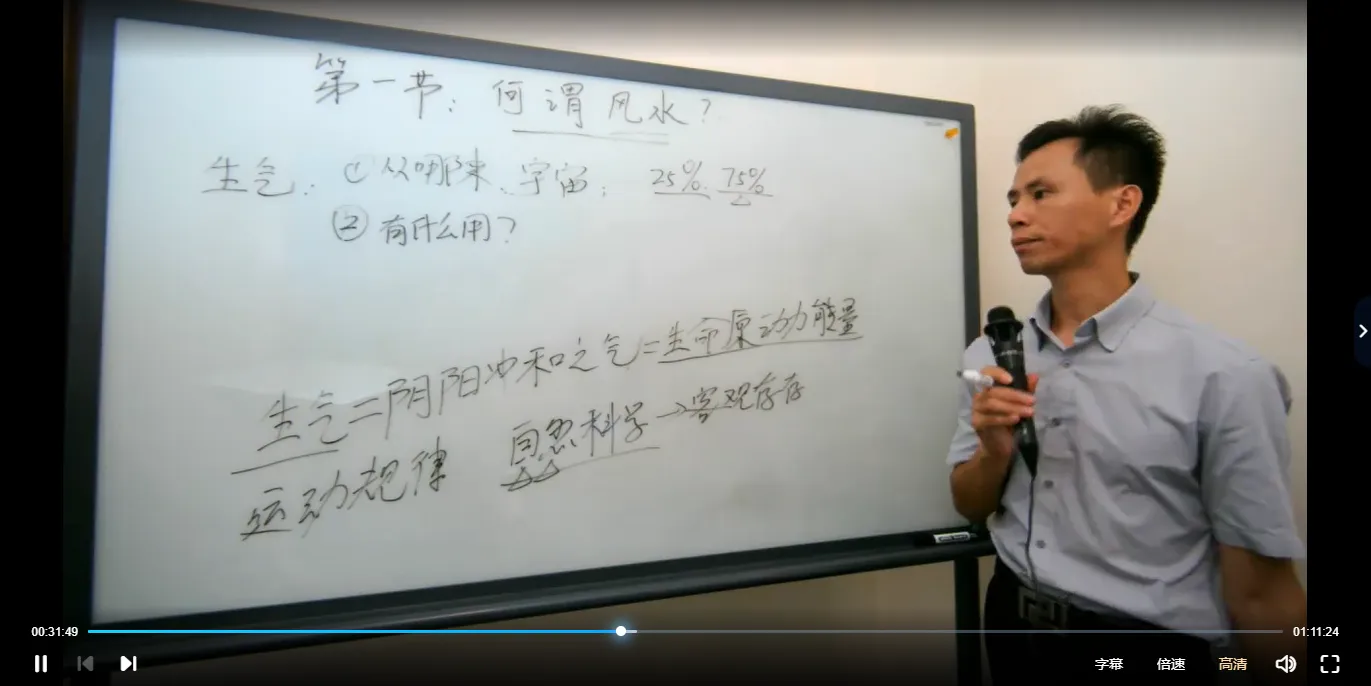 第一节：何谓风水？
生气：① 从哪来、宇宙； 25% 75%
② 有什么用？
生气=阴阳冲和之气=生命原动力能量
运动规律 自然科学→客观存存
00:31:49
01:11:24
字幕 倍速 高清